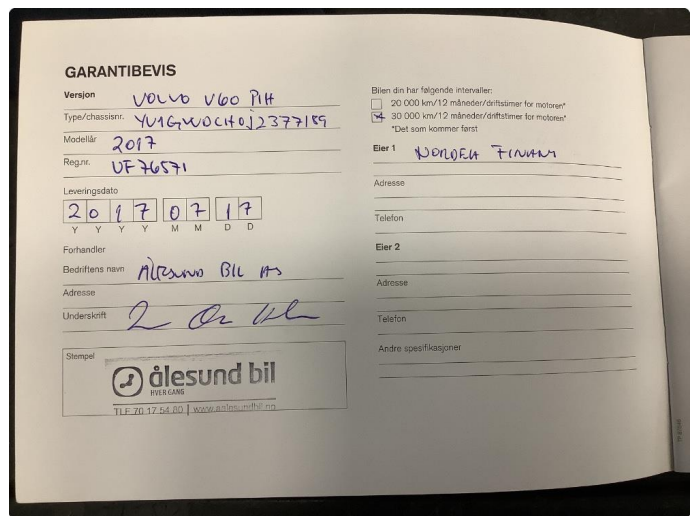 GARANTIBEVIS
Versjon VOLVO V60 PIH
Type/chassisnr. YV1GWDCH0J2377189
Modellår 2017
Reg.nr. UF76571
Leveringsdato
2 0 1 7 0 7 1 7
Y Y Y Y M M D D
Forhandler
Bedriftens navn ÅLESUND BIL AS
Adresse
Underskrift
Stempel
ålesund bil
HVER GANG
TLF 70 17 54 80 | www.aalesundbil.no
Bilen din har følgende intervaller:
20 000 km/12 måneder/driftstimer for motoren*
30 000 km/12 måneder/driftstimer for motoren*
*Det som kommer først
Eier 1 NORDEA FINANS
Adresse
Telefon
Eier 2
Adresse
Telefon
Andre spesifikasjoner